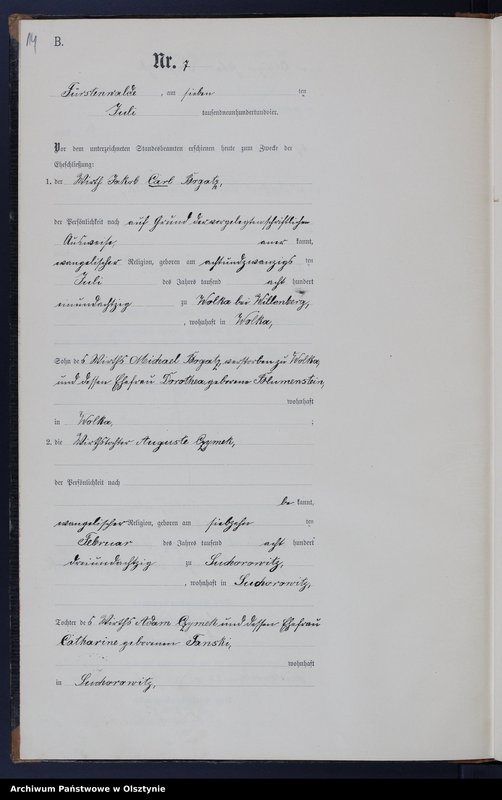 14
B.
Nr. 7
Fürstenwalde, am sieben ten
Juli tausendneunhundertundvier.
Vor dem unterzeichneten Standesbeamten erschienen heute zum Zwecke der
Eheschließung:
1. der Wirth Jakob Carl Bogatz,
der Persönlichkeit nach auf Grund der vorgelegten schriftlichen
Ausweise, aner kannt,
evangelischer Religion, geboren am achtundzwanzigs ten
Juli des Jahres tausend acht hundert
einundachtzig zu Wolka bei Willenberg,
, wohnhaft in Wolka,
Sohn des Wirths Michael Bogatz, verstorben zu Wolka,
und dessen Ehefrau Dorothea, geborene Blumenstein,
wohnhaft
in Wolka, ;
2. die Wirthstochter Auguste Czymek,
der Persönlichkeit nach
be kannt,
evangelischer Religion, geboren am siebzehn ten
Februar des Jahres tausend acht hundert
dreiundachtzig zu Suchorowitz,
, wohnhaft in Suchorowitz,
Tochter des Wirths Adam Czymek und dessen Ehefrau
Catharine geborenen Fanski,
wohnhaft
in Suchorowitz,
Archiwum Państwowe w Olsztynie